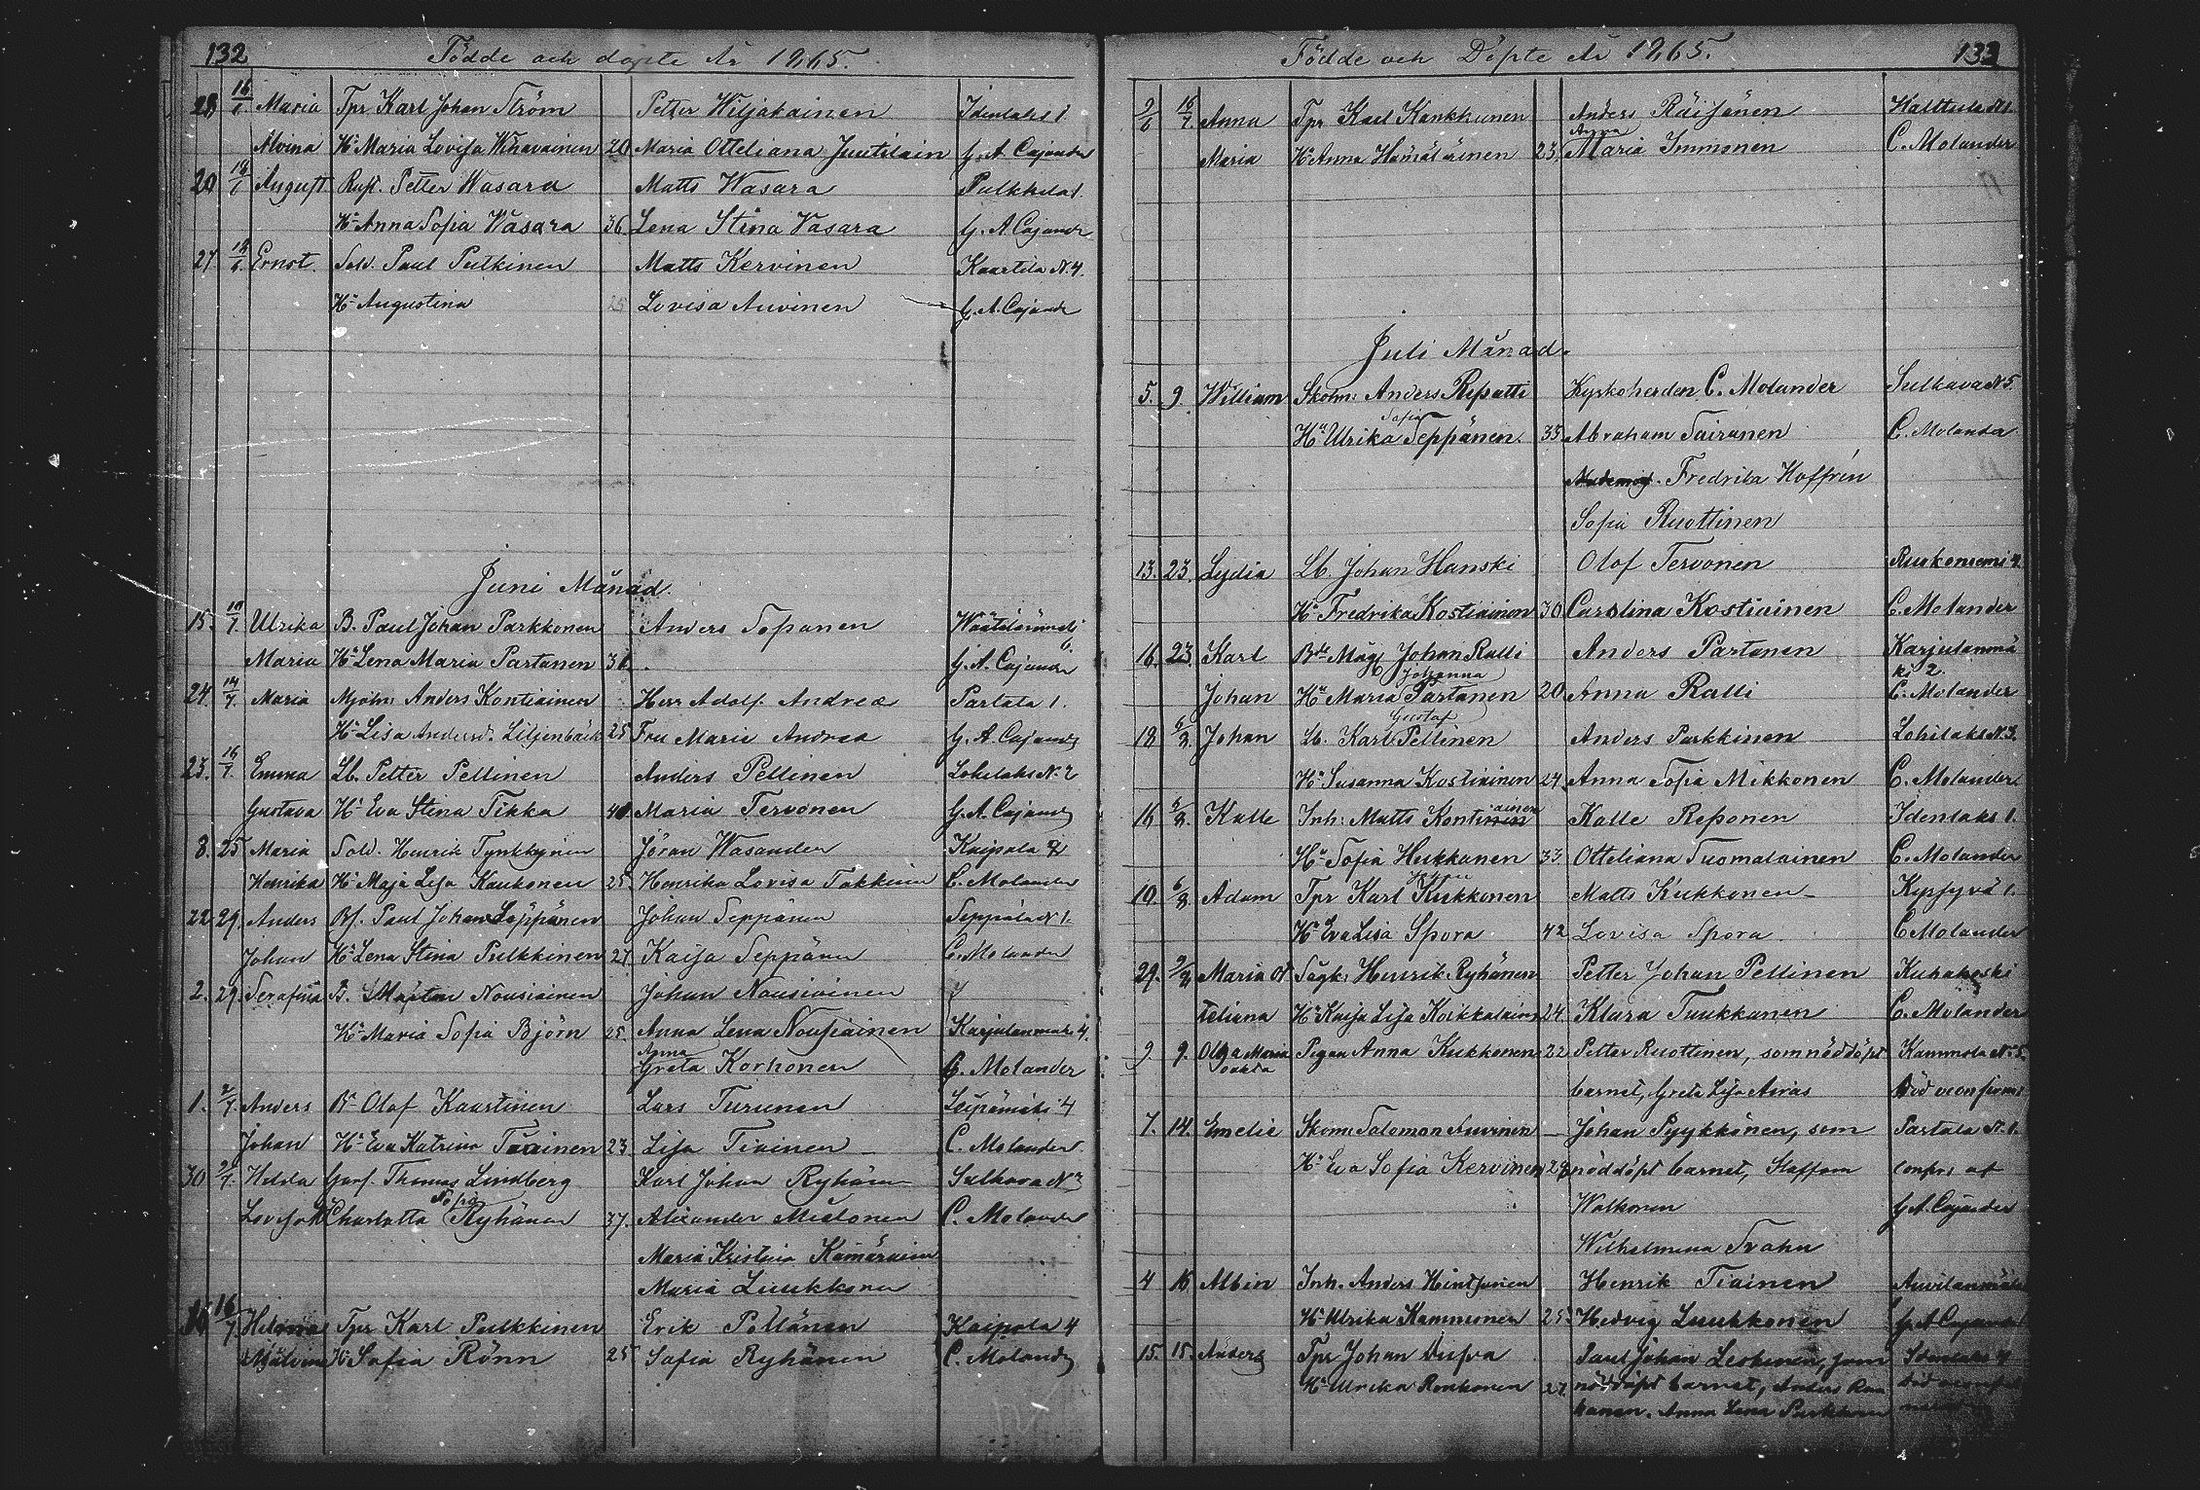 132 Födde och döpte År 1865.
28 16/6 Maria Tpr Karl Johan Ström Petter Wiljakainen Idenlaks 1.
Alvina Hu Maria Lovisa Wihavainen 20 Maria Otteliana Juutilain G. A. Cajander
20 18/6 August Rust. Petter Wasara Matts Wasara Pulkkila 1.
Hu Anna Sofia Wasara 36 Lena Stina Vasara G. A. Cajandr
27 18/6 Ernst. Sold. Paul Pulkinen Matts Kervinen Kaartila N. 4.
Hu Augustina 25 Lovisa Auvinen G. A. Cajandr
Juni Månad.
15. 10/7 Ulrika B. Paul Johan Parkkonen Anders Sopanen
Maria Hu Lena Maria Partanen 31. G. A. Cajander
24. 14/7 Maria Mjöln: Anders Kontiainen Herr Adolf. Andreæ Partala 1.
Hu Lisa Andersd. Liljenbäck 25 Fru Maria Andreæ G. A. Cajandr
23. 16/7 Emma Lb. Petter Pellinen Anders Pellinen Lohilaks N. 2
Gustava Hu Eva Stina Tikka 40. Maria Tervonen G. A. Cajandr
8. 25 Maria Sold. Henrik Tynkkynen Jöran Wasanden Kaipala 2
Henrika Hu Maja Lisa Kaukonen 25 Henrika Lovisa Takkinen C. Molander
22. 29. Anders Bf. Paul Johan Seppänen Johan Seppänen Seppälä N 1.
Johan Hu Lena Stina Pulkkinen 27 Kaisa Seppänen C. Molander
2. 29. Serafina B. Mårten Nousiainen Johan Nousiainen
Hu Maria Sofia Björn 25. Anna Lena Nousiainen Karjulanmäki 4.
Anna
Greta Korhonen C. Molander
1. 2/7. Anders B. Olof Kaartinen Lars Turunen Leipämäki 4
Johan Hu Eva Katrina Tiainen 23. Lisa Tiainen C. Molander
30 2/7. Hilda Garf. Thomas Lindberg Karl Johan Ryhänen Sulkava N 2
Sofia
Charlotta Ryhänen 37. Alexander Mielonen C. Molander
Maria Kristina Kamäräinen
Maria Luukkonen
16 16/7 Helena Tpr Karl Pulkkinen Erik Pöllänen Kaipala 4
Hu Sofia Rönn 25 Sofia Ryhänen C. Moland
Födde och Döpte År 1865. 133
9/6 16/7. Anna Tpr Karl Kankkunen Anders Räisänen Halttula N 1.
Anna
Maria Hu Anna Hämäläinen 23. Maria Immonen C. Molander
Juli Månad.
5. 9. William Skom: Anders Repatti Kyrkoherden C. Molander Sulkava N 5.
Sofia
Hu Ulrika Seppänen. 35 Abraham Sairanen C. Molander
Fredrika Hoffrén
Sofia Ruottinen
13. 23. Lydia Lb. Johan Hanski Olof Tervonen Ruokoniemi 4
Hu Fredrika Kostiainen 30 Carolina Kostiainen C. Molander
16. 23. Karl Bde Måg Johan Ralli Anders Partanen Karjulanmä
Johanna ki 2.
Johan Hu Maria Partanen 20 Anna Ralli C. Molander
Gustaf
18 6/8. Johan Lb. Karl Pellinen Anders Parkkinen Lohilaks N. 3.
Hu Susanna Kostiainen 24. Anna Sofia Mikkonen C. Molander
16 6/8. Kalle Inh: Matts Kontiainen Kalle Reponen Idenlaks 1.
Hu Sofia Hukkanen 33. Otteliana Suomalainen C. Molander
Johan
10. 6/8. Adam Tpr Karl Kukkonen Matts Kukkonen Kyrsyvä 1.
Hu Eva Lisa Spora 42 Lovisa Spora C. Molander
29. 9/8 Maria Ot Sågk: Henrik Ryhänen Petter Johan Pellinen Kuhakoski
teliana Hu Kaija Lisa Koikkalainen 24. Klara Tuukkanen C. Molander
9. 9. Olga Maria Pigan Anna Kukkonen 22 Petter Ruottinen, som nöddöpt Kammola N. 5.
barnet, Greta Lisa Auvas
7. 14. Emelie Skom: Salomon Auvinen Johan Pyykkönen, som Partala N. 1.
Hu Eva Sofia Kervinen 28 nöddöpt barnet, Staffan confir af
Walkonen G. A. Cajander
Wilhelmina Svahn
4 16 Albin Inh. Anders Hintsanen Henrik Tiainen Auvilanmäki
Hu Ulrika Kammonen 25 Hedvig Luukkonen G. A. Cajander
15. 15. Anders Tpr Johan Paul Johan Leskinen, som Idenlaks 4
Hu Ulrika Ronkonen 27. nöddöpt barnet, Anders
Anna Lena Parkkonen